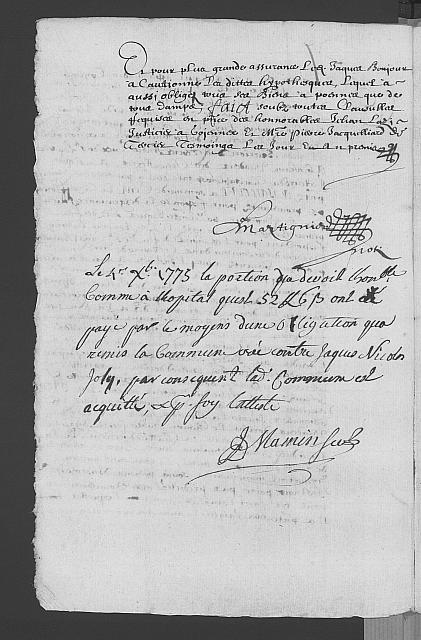 Et pour plus grande assurance Led. Jaques Bonjour
a Cautionné La ditte hypothecque, Lequel a
aussi obligé tous ses Biens a poenne que de
tous damps, faict soubz toutte Clausulles
requises en pnce des honnorables Jehan
Justicier a Et Mre Pierre Jacquillard de
Tesmoings Les Jour Et An premis
Martignier
Not.
Le 4e Xbre 1775 la portion qua devoit l'hon.ble
Comme à Hopital quest 52 ℔ 6 ß ont été
payé par le moyens dune Obligation que
remis la Commune contre Jaques Nicolas
Joly, par consequent lad. Commune est
acquittée, & pr. foy l'atteste
Mamin